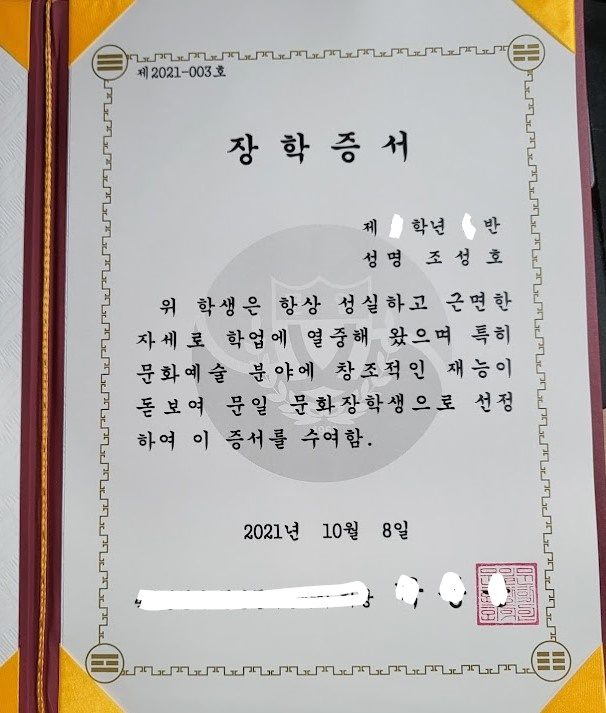 제 2021-003 호
장 학 증 서
제 학년 반
성 명 조 성 호
위 학생은 항상 성실하고 근면한
자세로 학업에 열중해 왔으며 특히
문화예술 분야에 창조적인 재능이
돋보여 문일 문화장학생으로 선정
하여 이 증서를 수여함.
2021년 10월 8일